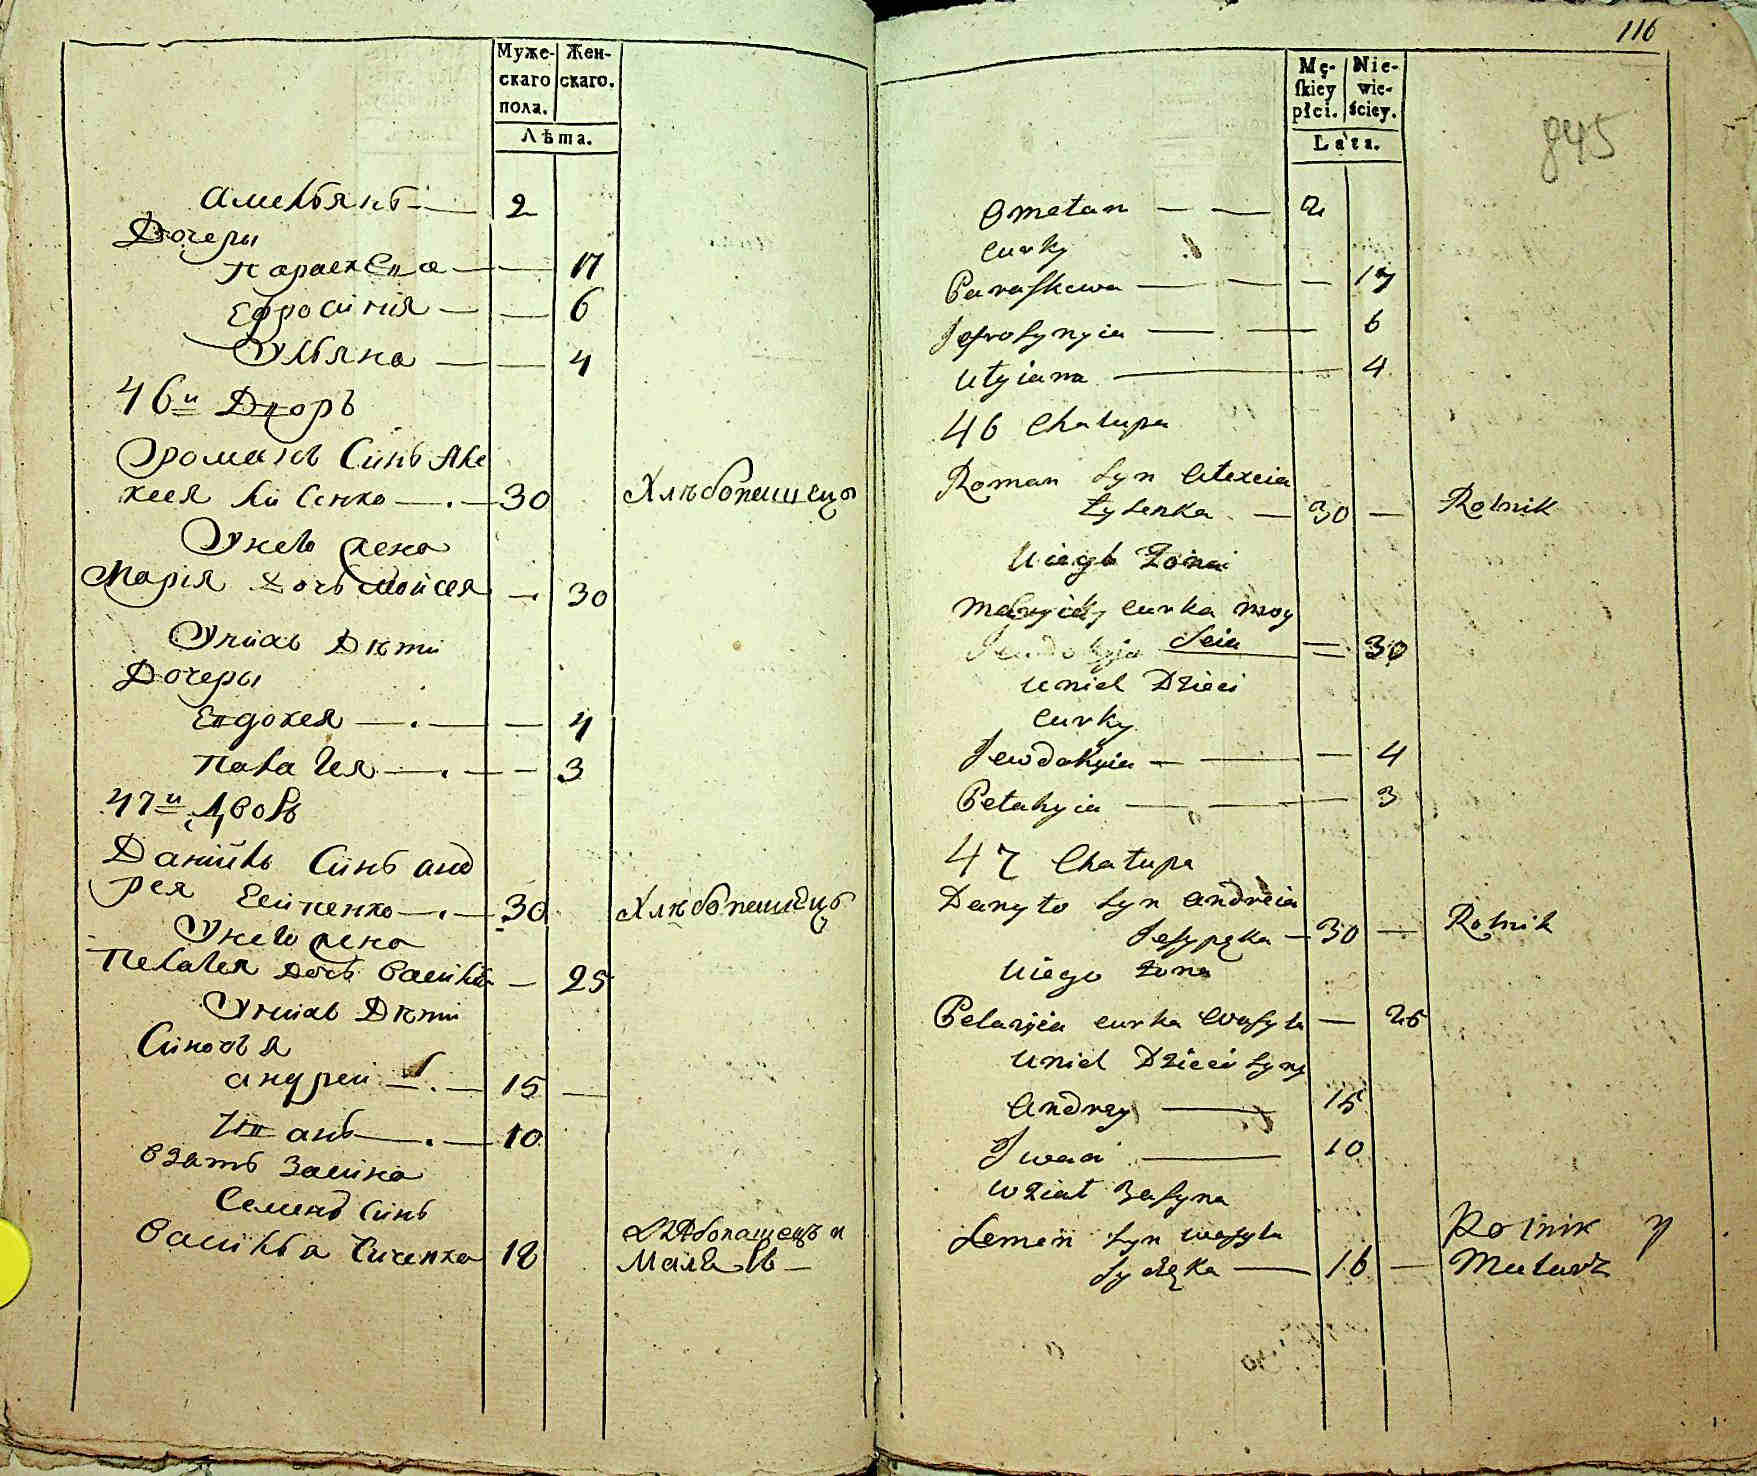 Муже-
скаго
пола.
Жен-
скаго.
Лѣта.
Амельянъ — 2
Дочеры
Параскева — — 17
Ефросинiя — — 6
Ульяна — — 4
46й Дворъ
Романъ Синъ Але
ксея Лисенко — . — 30 Хлѣбопашецъ
У нево жена
Марiя дочь Мойсея — 30
У ниавъ Дѣти
Дочеры
Евдокея — . — — 4
Палагея — . — — 3
47й Дворъ
Данiилъ Синъ Анд
рея Есипенко — . — 30 Хлѣбопашецъ
У нево жена
Пелагея дочь Василья — 25
У ниавъ Дѣти
Синовья
Андрей — . — 15 —
Иванъ — . — 10
взятъ засина
Семенъ Синъ
Василья Сиченка 18 Хлѣбопашецъ и
Маляръ —
116
845
Mę-
skiey
płci.
Nie-
wie-
ściey.
Lata.
Ometan — — 2
Curky
Paraskewa — — — 17
Jefrosynyia — — 6
Ulyiana — 4
46 Chalupa
Roman Syn Alexeia
Łysenka — 30 — Rolnik
Uiego Żona
curka Moy
Seia — 30
Unich Dzieci
Curky
Jewdokyia — — — 4
Pelahyia — — 3
47 Chałupa
Danyło Syn Andreia
Jesypęka — 30 — Rolnik
Uiego żona
Pelagia curka Wasyla — 25
Unich Dzieci Syny
Andrey — 15
Iwan — 10
wziat zasyna
Semen Syn Wasyla
Syczęka — 16 — Rolnik y
Mularz